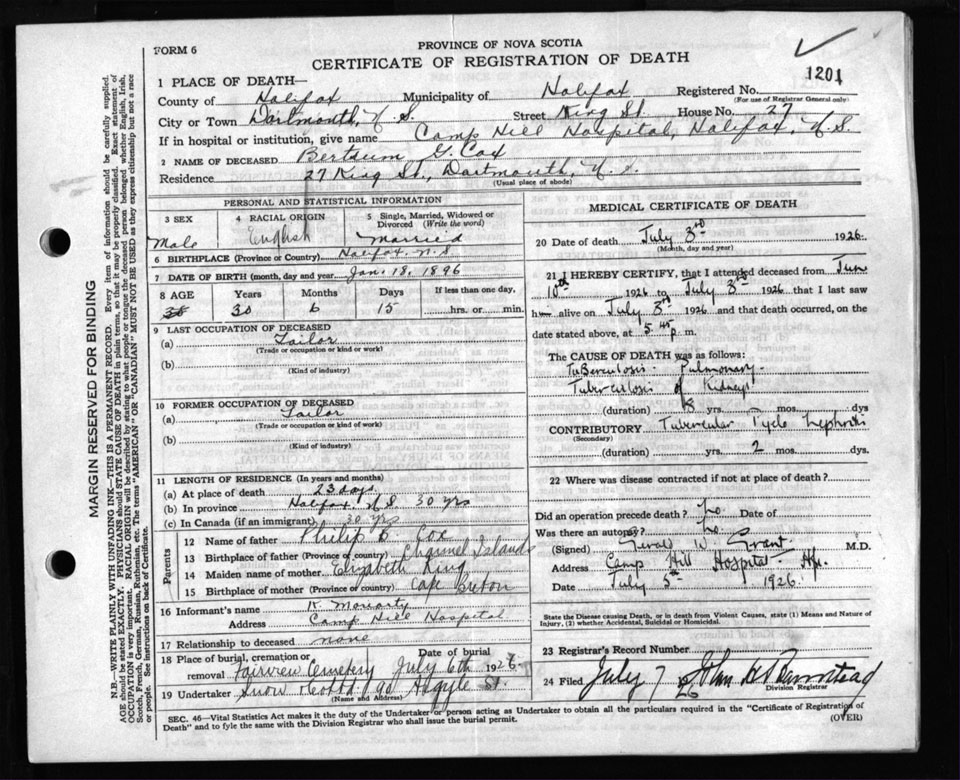 FORM 6
PROVINCE OF NOVA SCOTIA
CERTIFICATE OF REGISTRATION OF DEATH
1201
1 PLACE OF DEATH—
Registered No.
(For use of Registrar General only)
County of Halifax Municipality of Halifax
City or Town Dartmouth, N.S. Street King St. House No. 27
If in hospital or institution, give name Camp Hill Hospital, Halifax, N.S.
2 NAME OF DECEASED Bertrum G. Cox
Residence 27 King St., Dartmouth, N.S.
(Usual place of abode)
PERSONAL AND STATISTICAL INFORMATION
3 SEX Male
4 RACIAL ORIGIN English
5 Single, Married, Widowed or Divorced (Write the word) Married
6 BIRTHPLACE (Province or Country) Halifax, N.S
7 DATE OF BIRTH (month, day and year) Jan. 18, 1896
8 AGE Years Months Days If less than one day,
30 6 15 hrs. or min.
9 LAST OCCUPATION OF DECEASED
(a) Tailor
(Trade or occupation or kind or work)
(b)
(Kind of industry)
10 FORMER OCCUPATION OF DECEASED
(a) Tailor
(Trade or occupation or kind or work)
(b)
(Kind of industry)
11 LENGTH OF RESIDENCE (In years and months)
(a) At place of death 23 days
(b) In province Halifax, N.S. 30 yrs
(c) In Canada (if an immigrant) 30 yrs
Parents
12 Name of father Philip B. Cox
13 Birthplace of father (Province or country) Channel Islands
14 Maiden name of mother Elizabeth King
15 Birthplace of mother (Province or country) Cape Breton
16 Informant's name K. Moriarty
Address Camp Hill Hospital
17 Relationship to deceased none
18 Place of burial, cremation or removal Fairview Cemetery Date of burial July 6th 1926
19 Undertaker Snow & Co Ltd 90 Argyle St.
(Name and Address)
MEDICAL CERTIFICATE OF DEATH
20 Date of death July 3rd 1926.
(Month, day and year)
21 I HEREBY CERTIFY, that I attended deceased from Jun
10th 1926 to July 3rd 1926 that I last saw
him alive on July 3rd 1926 and that death occurred, on the
date stated above, at 5 45 p. m.
The CAUSE OF DEATH was as follows:
Tuberculosis - Pulmonary.
Tuberculosis of Kidney
(duration) 8 yrs. mos. dys
CONTRIBUTORY Tubercular Pyelo Nephritis
(Secondary)
(duration) yrs. 2 mos. dys.
22 Where was disease contracted if not at place of death?
Did an operation precede death? No Date of
Was there an autopsy? No.
(Signed) Gerald W. Grant M.D.
Address Camp Hill Hospital - Hfx.
Date July 5th 1926.
State the Disease causing Death, or in death from Violent Causes, state (1) Means and Nature of
Injury, (2) whether Accidental, Suicidal or Homicidal.
23 Registrar's Record Number
24 Filed July 7 26 John
Division Registrar
SEC. 46—Vital Statistics Act makes it the duty of the Undertaker or person acting as Undertaker to obtain all the particulars required in the "Certificate of Registration of
Death" and to fyle the same with the Division Registrar who shall issue the burial permit. (OVER)
MARGIN RESERVED FOR BINDING
N.B.—WRITE PLAINLY WITH UNFADING INK—THIS IS A PERMANENT RECORD. Every item of information should be carefully supplied.
AGE should be stated EXACTLY. PHYSICIANS should STATE CAUSE OF DEATH in plain terms, so that it may be properly classified. Exact statement of
OCCUPATION is very important. RACIAL ORIGIN will be described by stating to what people or tongue the deceased person belonged whether English, Irish,
Scotch, French, German, Russian, Ruthenian, etc. The terms "AMERICAN" OR "CANADIAN" MUST NOT BE USED as they express citizenship but not a race
or people. See instructions on back of Certificate.